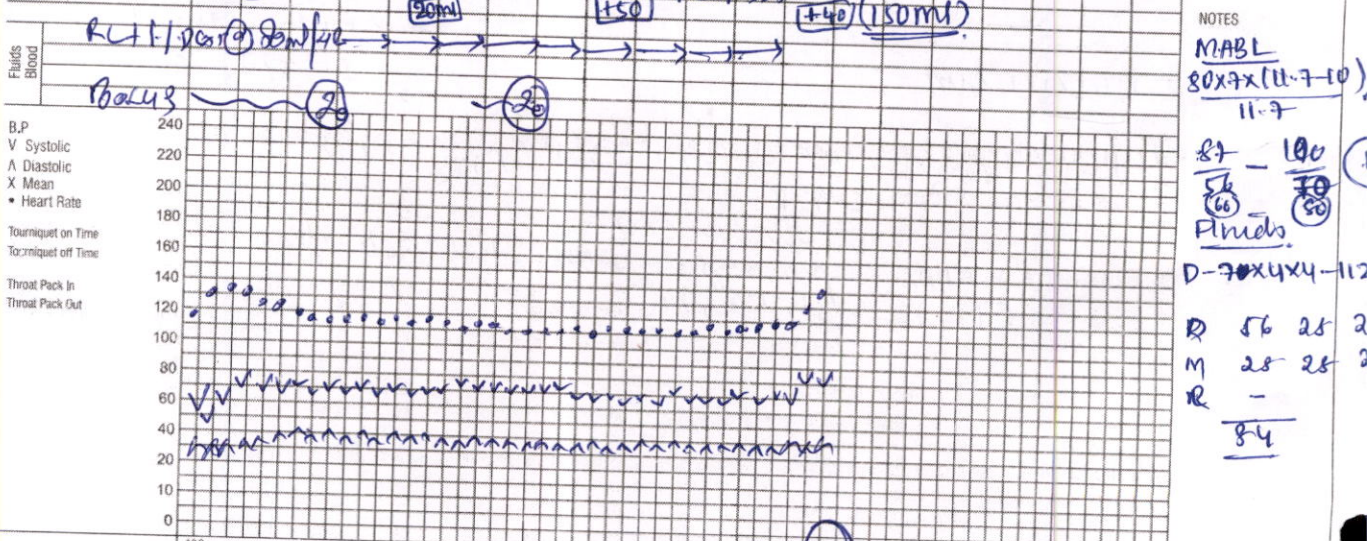 20ml +50 +40 (150ml)
Fluids
Blood
Bolus 20 20
B.P
V Systolic
Λ Diastolic
X Mean
• Heart Rate
Tourniquet on Time
Tourniquet off Time
Throat Pack In
Throat Pack Out
240
220
200
180
160
140
120
100
80
60
40
20
10
0
NOTES
MABL
80x7x(11.7-10)
11.7
87 - 100
56 - 70
66 80
Fluids
D-7x4x4-112
D 56 28 2
M 28 28 2
R -
84